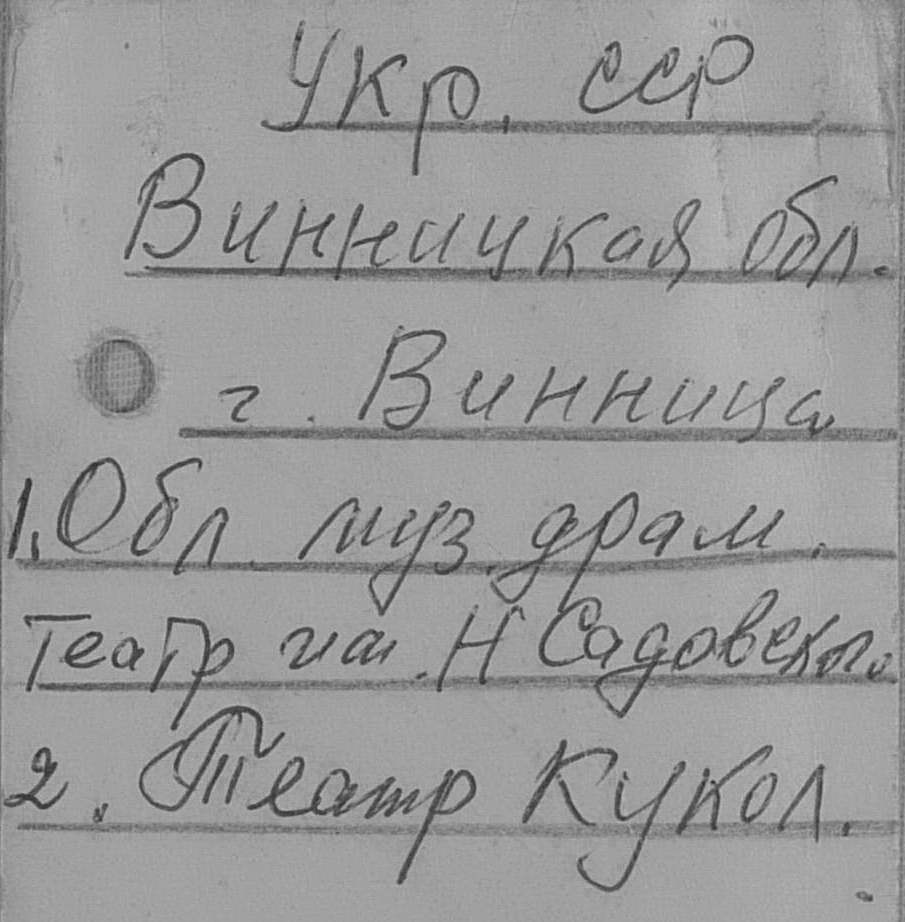 Укр. ССР
Винницкая обл.
г. Винница
1. Обл. муз. драм.
Театр им. Н Садовского
2. Театр Кукол.